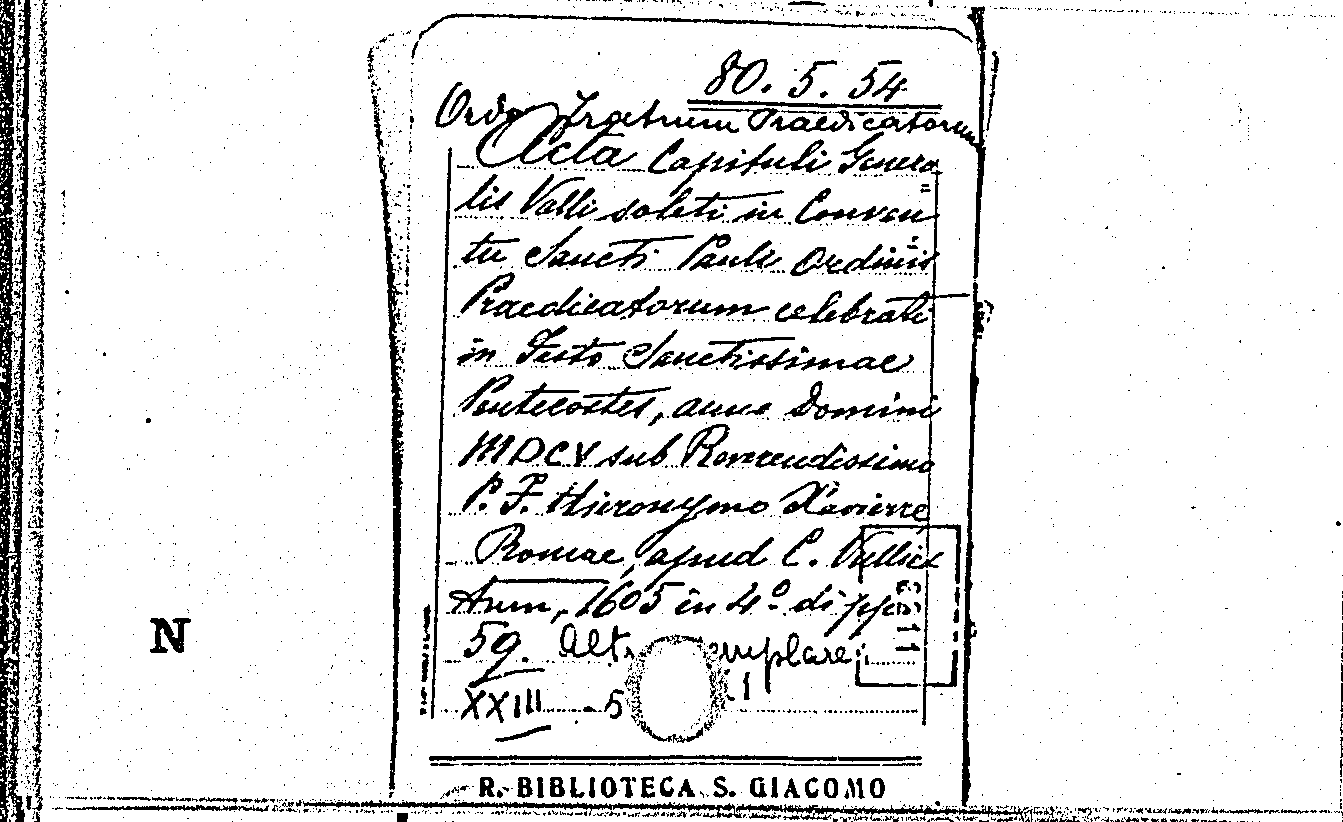 80. 5. 54
Ordo Fratrum Praedicatorum
Acta Capituli Genera
=
lis Valli soleti in Conven
=
tu Sancti Pauli Ordinis
Praedicatorum celebrati
in Festo Sanctissimae
Pentecostes, anno Domini
MDCV sub Reverendissimo
P. F. Hieronymo Xavierre
Romae, apud C. Vullietum, 1605 in 4.º di pp.
59.
XXIII - 5 1
N
R. BIBLIOTECA S. GIACOMO